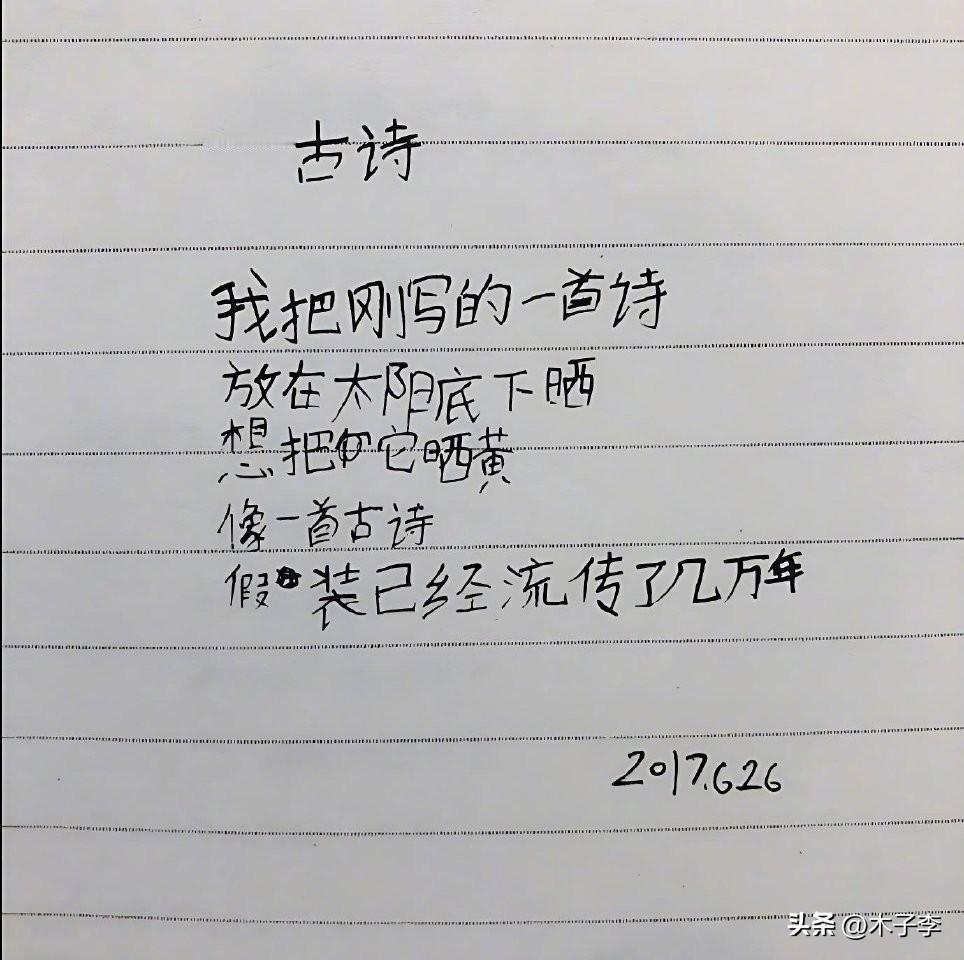 古诗
我把刚写的一首诗
放在太阳底下晒
想把它晒黄
像一首古诗
假装已经流传了几万年
2017.6.26
头条 @木子李